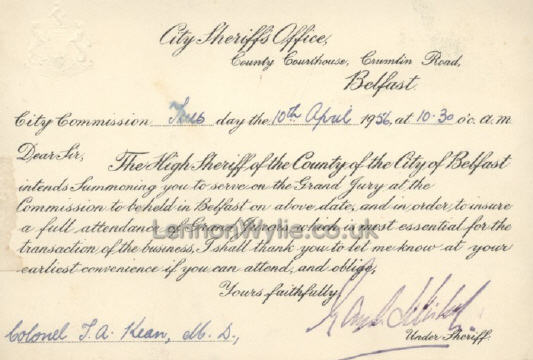 City Sheriff's Office,
County Courthouse, Crumlin Road,
Belfast.
City Commission Tues day the 10th April 1956, at 10.30 o'c. a.m
Dear Sir,
The High Sheriff of the County of the City of Belfast
intends Summoning you to serve on the Grand Jury at the
Commission to be held in Belfast on above date, and in order to insure
a full attendance of Grand Jurors which is most essential for the
LennonWylie.co.uk
transaction of the business, I shall thank you to let me know at your
earliest convenience if you can attend, and oblige,
Yours faithfully
Under-Sheriff.
Colonel T. A. Kean, M. D.,